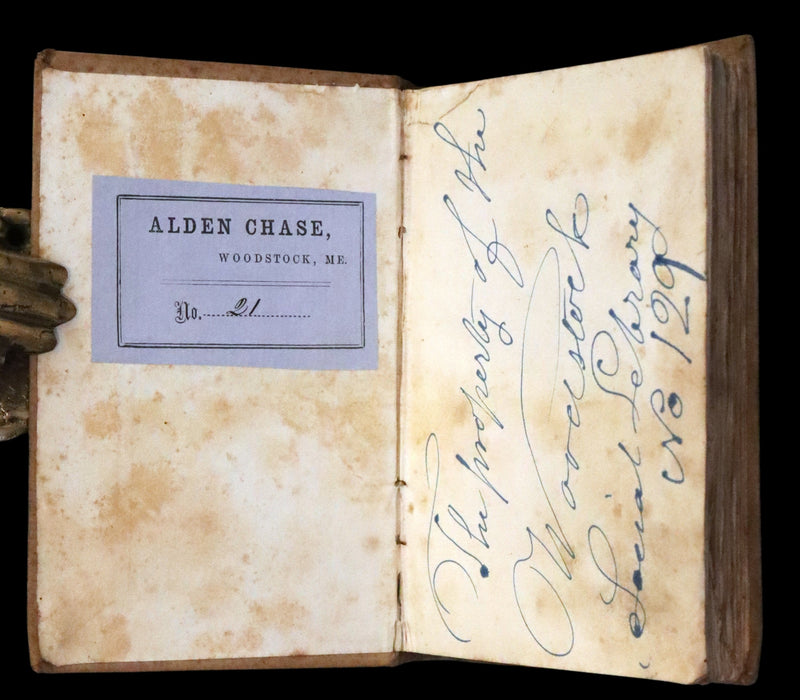 ALDEN CHASE,
WOODSTOCK, ME.
No. 21
The property of the
Woodstock
Social Library
No 129